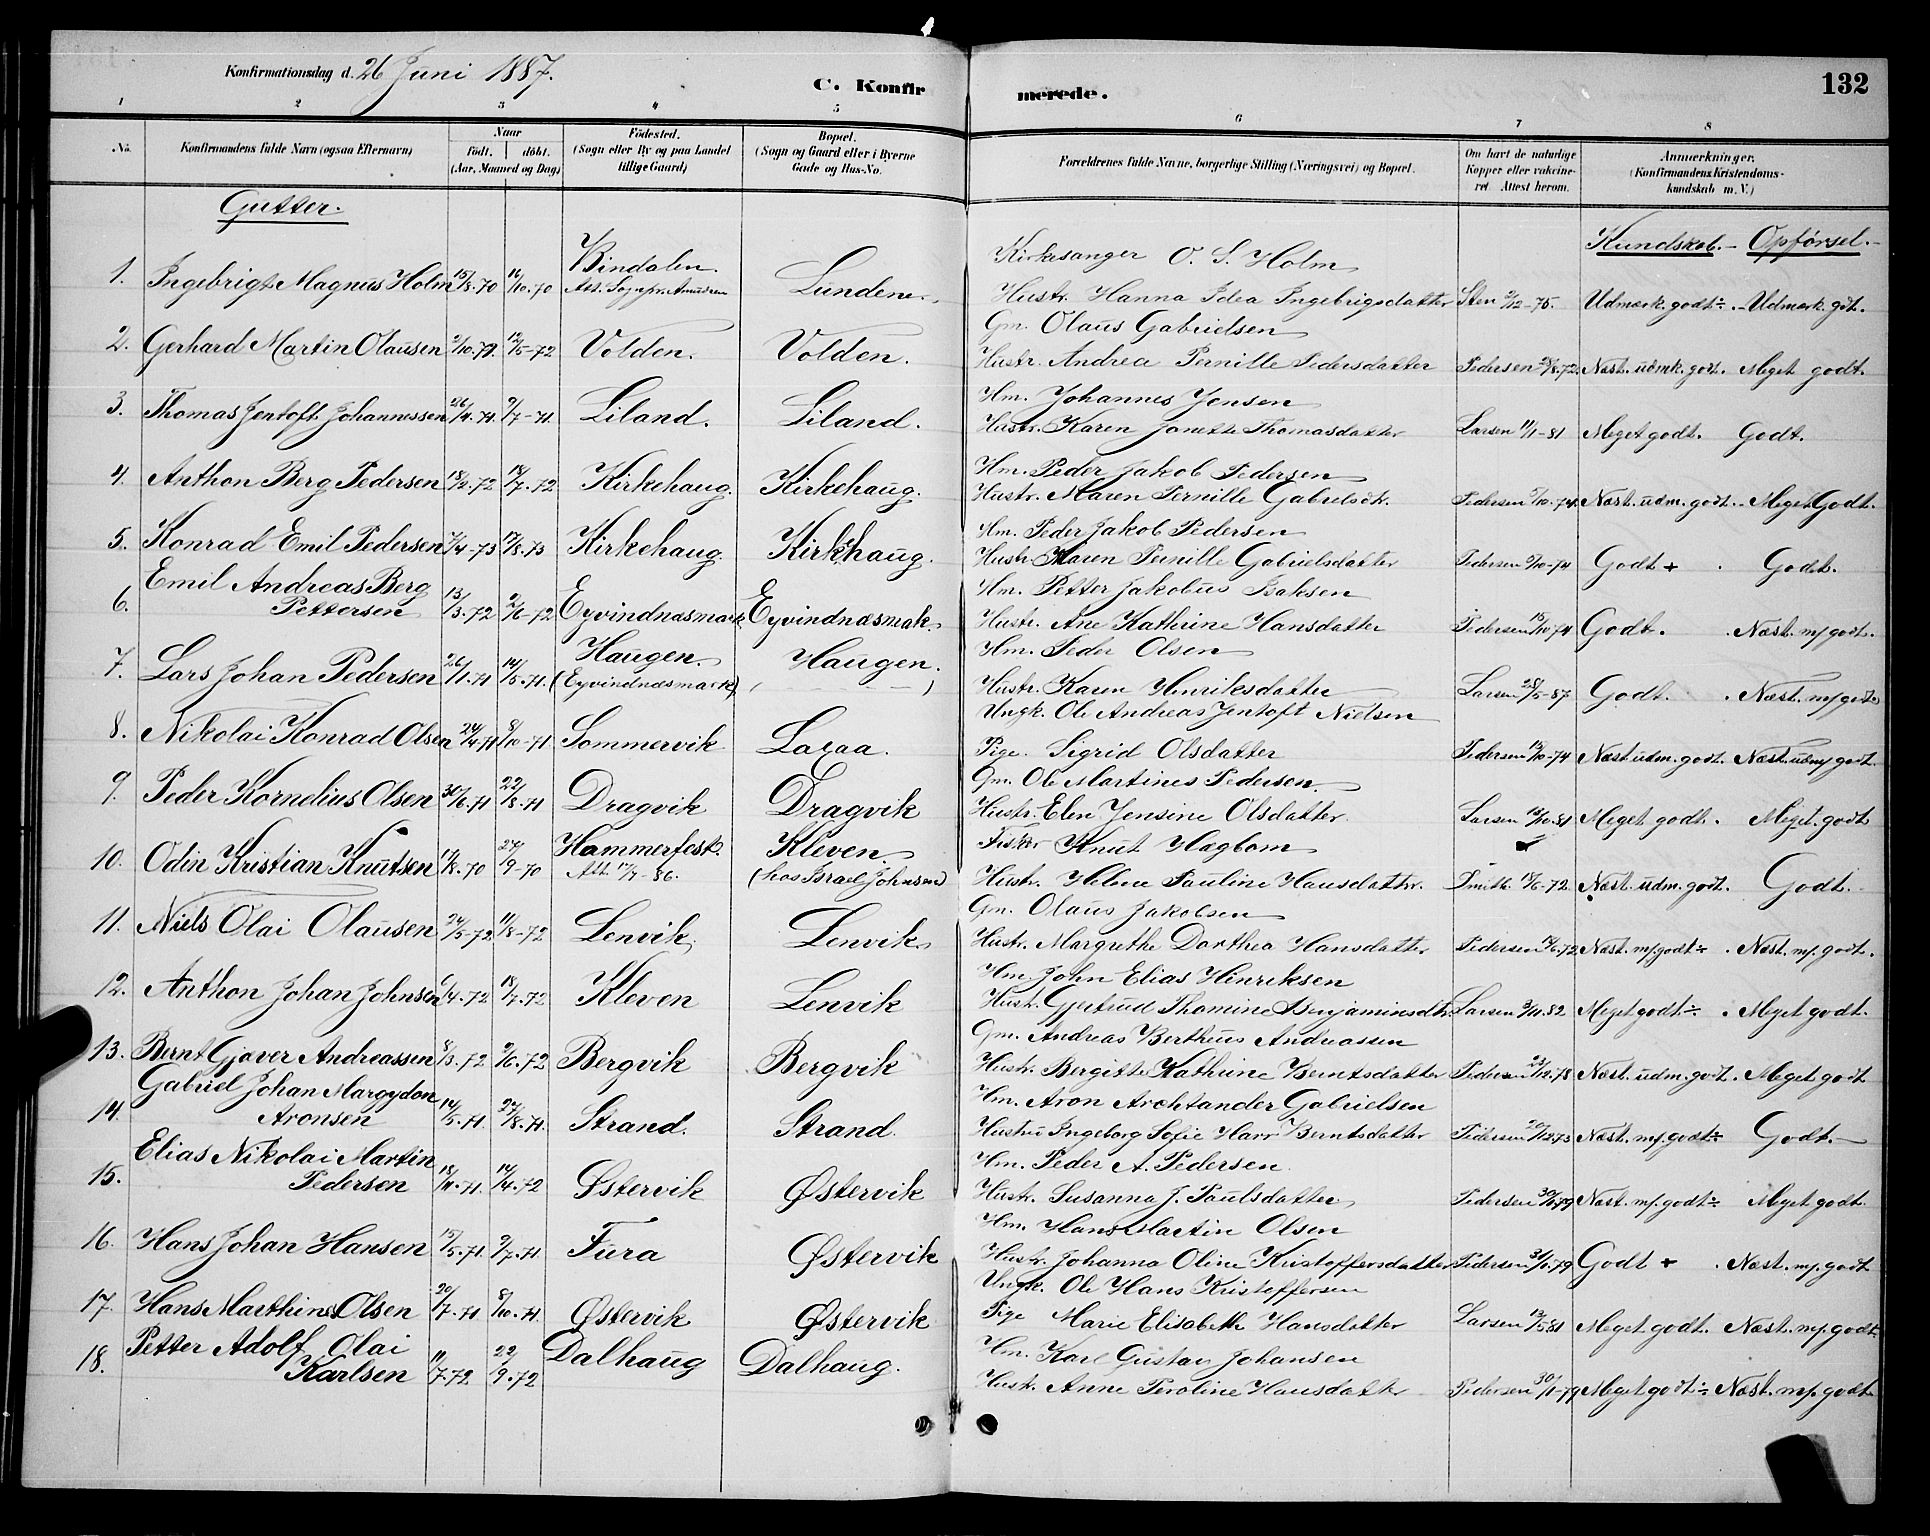 Konfirmationsdag d. 26 Juni 1887.
C. Konfir merede. 132
1 2 3 4 5 6 7 8
No. Konfirmandens fulde Navn (ogsaa Efternavn) Naar födt. döbt. (Aar, Maaned og Dag) Födested. (Sogn eller By og paa Landet tillige Gaard) Bopæl. (Sogn og Gaard eller i Byerne Gade og Hus-No. Forældrenes fulde Navne, borgerlige Stilling (Næringsvei) og Bopæl. Om havt de naturlige Kopper eller vakcineret. Attest herom. Anmærkninger. (Konfirmandens Kristendomskundskab m. V.)
Gutter.
Kundskab. - Opførsel. -
Bindalen. Kirkesanger O. S. Holm
1. Ingebrigt Magnus Holm 15/8.70 11/10.70 Lunden. Hustr. Hanna Idea Ingebrigsdatter Sten 9/12-75. Udmærk. godt ÷ - Udmærk. gdt.
Gm. Olaus Gabrielsen
2. Gerhard Martin Olausen 9/10.71. 12/5-72 Volden. Volden. Hustr. Andrea Pernille Pedersdatter Pedersen 28/8.72. Næst. udmk. godt. Meget godt.
Hm. Johannes Jensen
3. Thomas Jentoft Johannessen 26/4.71. 9/7-71. Liland. Liland. Hustr. Karen Janette Thomasdatter Larsen 11/1-81 Meget godt. Godt.
Hm. Peder Jakob Pedersen
4. Anthon Berg Pedersen 18/2.72 18/7.72 Kirkehaug. Kirkehaug. Hustr. Maren Pernille Gabrielsdt. Pedersen 5/10.74. Næst. udm. godt. - Meget Godt.
Hm. Peder Jakob Pedersen
5. Konrad Emil Pedersen 7/4-73 17/8.73 Kirkehaug. Kirkehaug. Hustr. Maren Pernille Gabrielsdatter Pedersen 5/10-74 Godt + Godt.
Emil Andreas Berg Hm. Petter Jakobus Isaksen
6. Pettersen 13/3.72 2/6-72 Eyvindnæsmark Eyvindnæsmak. Hustr. Ane Kathrine Hansdatter Pedersen 15/10.74 Godt. Næst. m/godt.
Haugen. Haugen. Hm. Peder Olsen
7. Lars Johan Pedersen 26/1.71 14/5.71. (Eyvindnæsmark) Hustr. Karen Henriksdatter Larsen 28/5-87 Godt. Næst. m/godt.
Ungk. Ole Andreas Jentoft Nielsen
8. Nikolai Konrad Olsen 24/4.71 8/10-71 Sommervik Lavaa. Pige. Sigrid Olsdatter Pedersen 18/10-74 Næst udm. godt. Næst. udm. godt.
Gm. Ole Martines Pedersen.
9. Peder Kornelius Olsen 30/6.71 22/8.71 Dragvik Dragvik Hustr. Elen Jensine Olsdatter. Larsen 18/10.81 Meget godt. Meget. godt
Hammerfest. Kleven. Fisker Knut Hægbom
10. Odin Kristian Knutsen 17/8.70 27/9-70 Att. 17/7-86. (hos Israel Johnsen) Hustr. Helene Pauline Hansdatter. Smith. 13/6-72. Næst. udm. godt. Godt.
Gm. Olaus Jakobsen
11. Niels Olai Olausen 24/5-72 11/8-72 Lenvik. Lenvik. Hustr. Margrethe Dorthea Hansdatter Pedersen 13/6.72 Næst. m/.godt ÷ Næst. m/. godt.
Hm. John Elias Hinriksen
12. Anthon Johan Johnsen 6/4.72 18/7.72 Kleven Lenvik Hust. Gertrud Thomine Benjaminsdtr. Larsen 3/11.82 Meget godt ÷ . Meget godt.
Gm. Andreas Bertheus Andreassen
13. Bernt Gjæver Andreassen 8/3.72 2/6.72 Bergvik Bergvik Hustr. Bergitte Kathrine Berntsdatter Pedersen 23/12.78 Næst. udm. godt. Meget godt
Gabriel Johan Margydon Hm. Aron Archtander Gabrielsen
14. Aronsen 14/5.71. 27/8.71. Strand. Strand. Hustru Ingeborg Sofie Harr Berntsdatter Pedersen 28/12.73 Næst. m/. godt ÷ Godt.
Elias Nikolai Martin Hm. Peder A. Pedersen.
15. Pedersen 18/11.71. 14/4.72 Østervik Østervik Hustr. Susanna J. Paulsdatter Pedersen 30/1.79 Næst. m/. godt ÷ Meget godt.
Hm. Hans Martin Olsen
16. Hans Johan Hansen 15/5.71. 9/7.71 Fura Østervik Hustr. Johanna Oline Kristoffersdatter Pedersen 31/1.79 Godt + . Næst. m/. godt
Ungk. Ole Hans Kristoffersen
17. Hans Marthines Olsen 20/7.71 8/10.71. Østervik Østervik Pige Marie Elisabeth Hansdatter Larsen 13/5 81 Meget godt. Næst. m/. godt.
Petter Adolf Olai Hm. Karl Gustav Johansen
18. Karlsen 11/7.72 22/9.72 Dalhaug Dalhaug. Hustr. Anne Peroline Hansdatter Pedersen 30/1-79 Meget godt ÷ Næst. m/. godt.